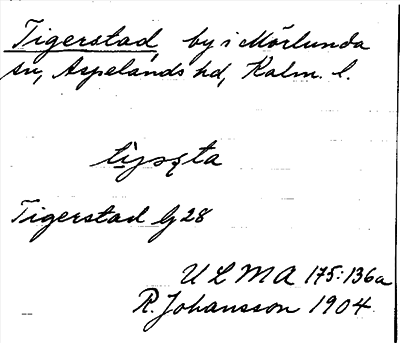 Tigerstad, by i Mörlunda
sn, Aspelands hd, Kalm. l.
Tigerstad lj 28
ULMA 175:136a
R. Johansson 1904